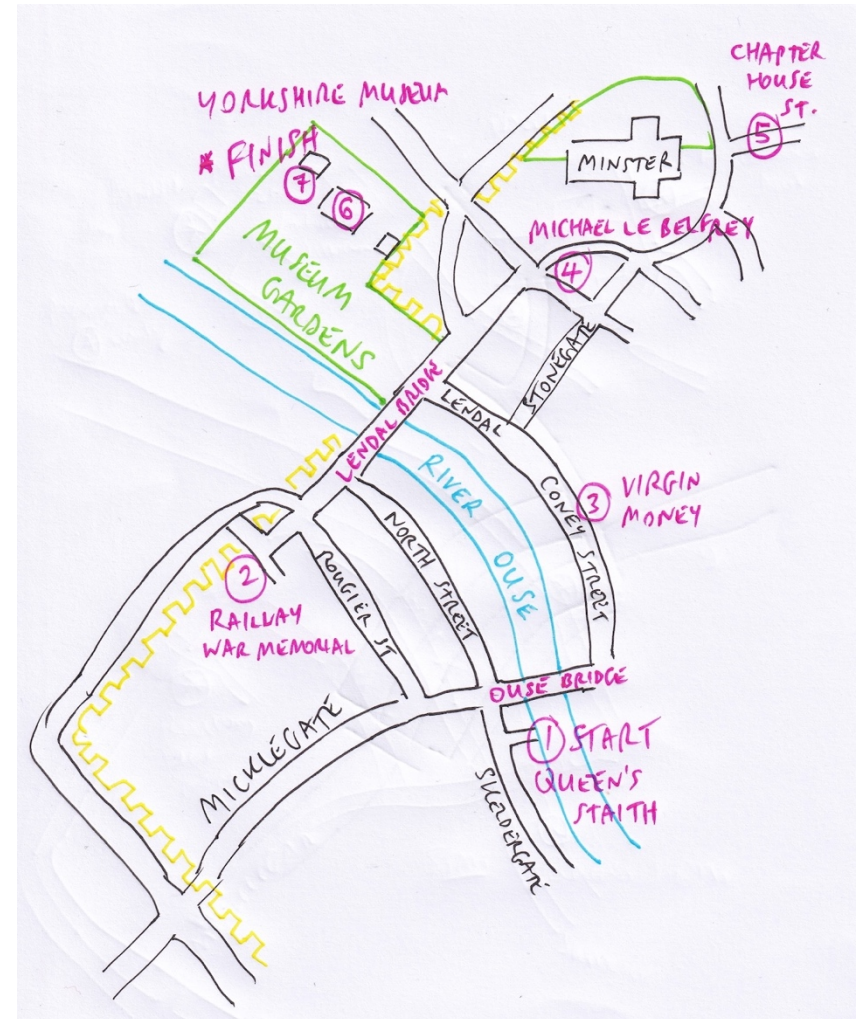 YORKSHIRE MUSEUM
* FINISH
7
6
MUSEUM
GARDENS
CHAPTER
HOUSE
ST.
5
MINSTER
MICHAEL LE BELFREY
4
STONEGATE
LENDAL BRIDGE
LENDAL
RIVER OUSE
CONEY STREET
3 VIRGIN
MONEY
NORTH STREET
ROUGIER ST
2
RAILWAY
WAR MEMORIAL
OUSE BRIDGE
1 START
QUEEN'S
STAITH
MICKLEGATE
SKELDERGATE